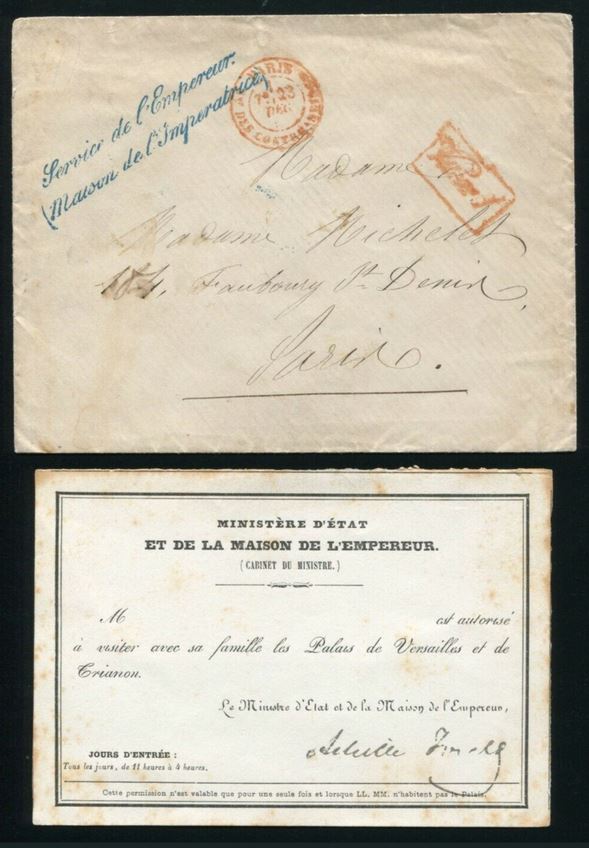 Service de l'Empereur.
(Maison de l'Imperatrice)
PARIS
7e 23
DEC
Madame
Madame Michelet
184, Faubourg St Denis,
Paris.
MINISTÈRE D'ÉTAT
ET DE LA MAISON DE L'EMPEREUR.
(CABINET DU MINISTRE.)
M est autorisé
à visiter avec sa famille les Palais de Versailles et de
Trianon.
Le Ministre d'Etat et de la Maison de l'Empereur,
Achille Fould
JOURS D'ENTRÉE :
Tous les jours, de 11 heures à 4 heures.
Cette permission n'est valable que pour une seule fois et lorsque LL. MM. n'habitent pas le Palais.